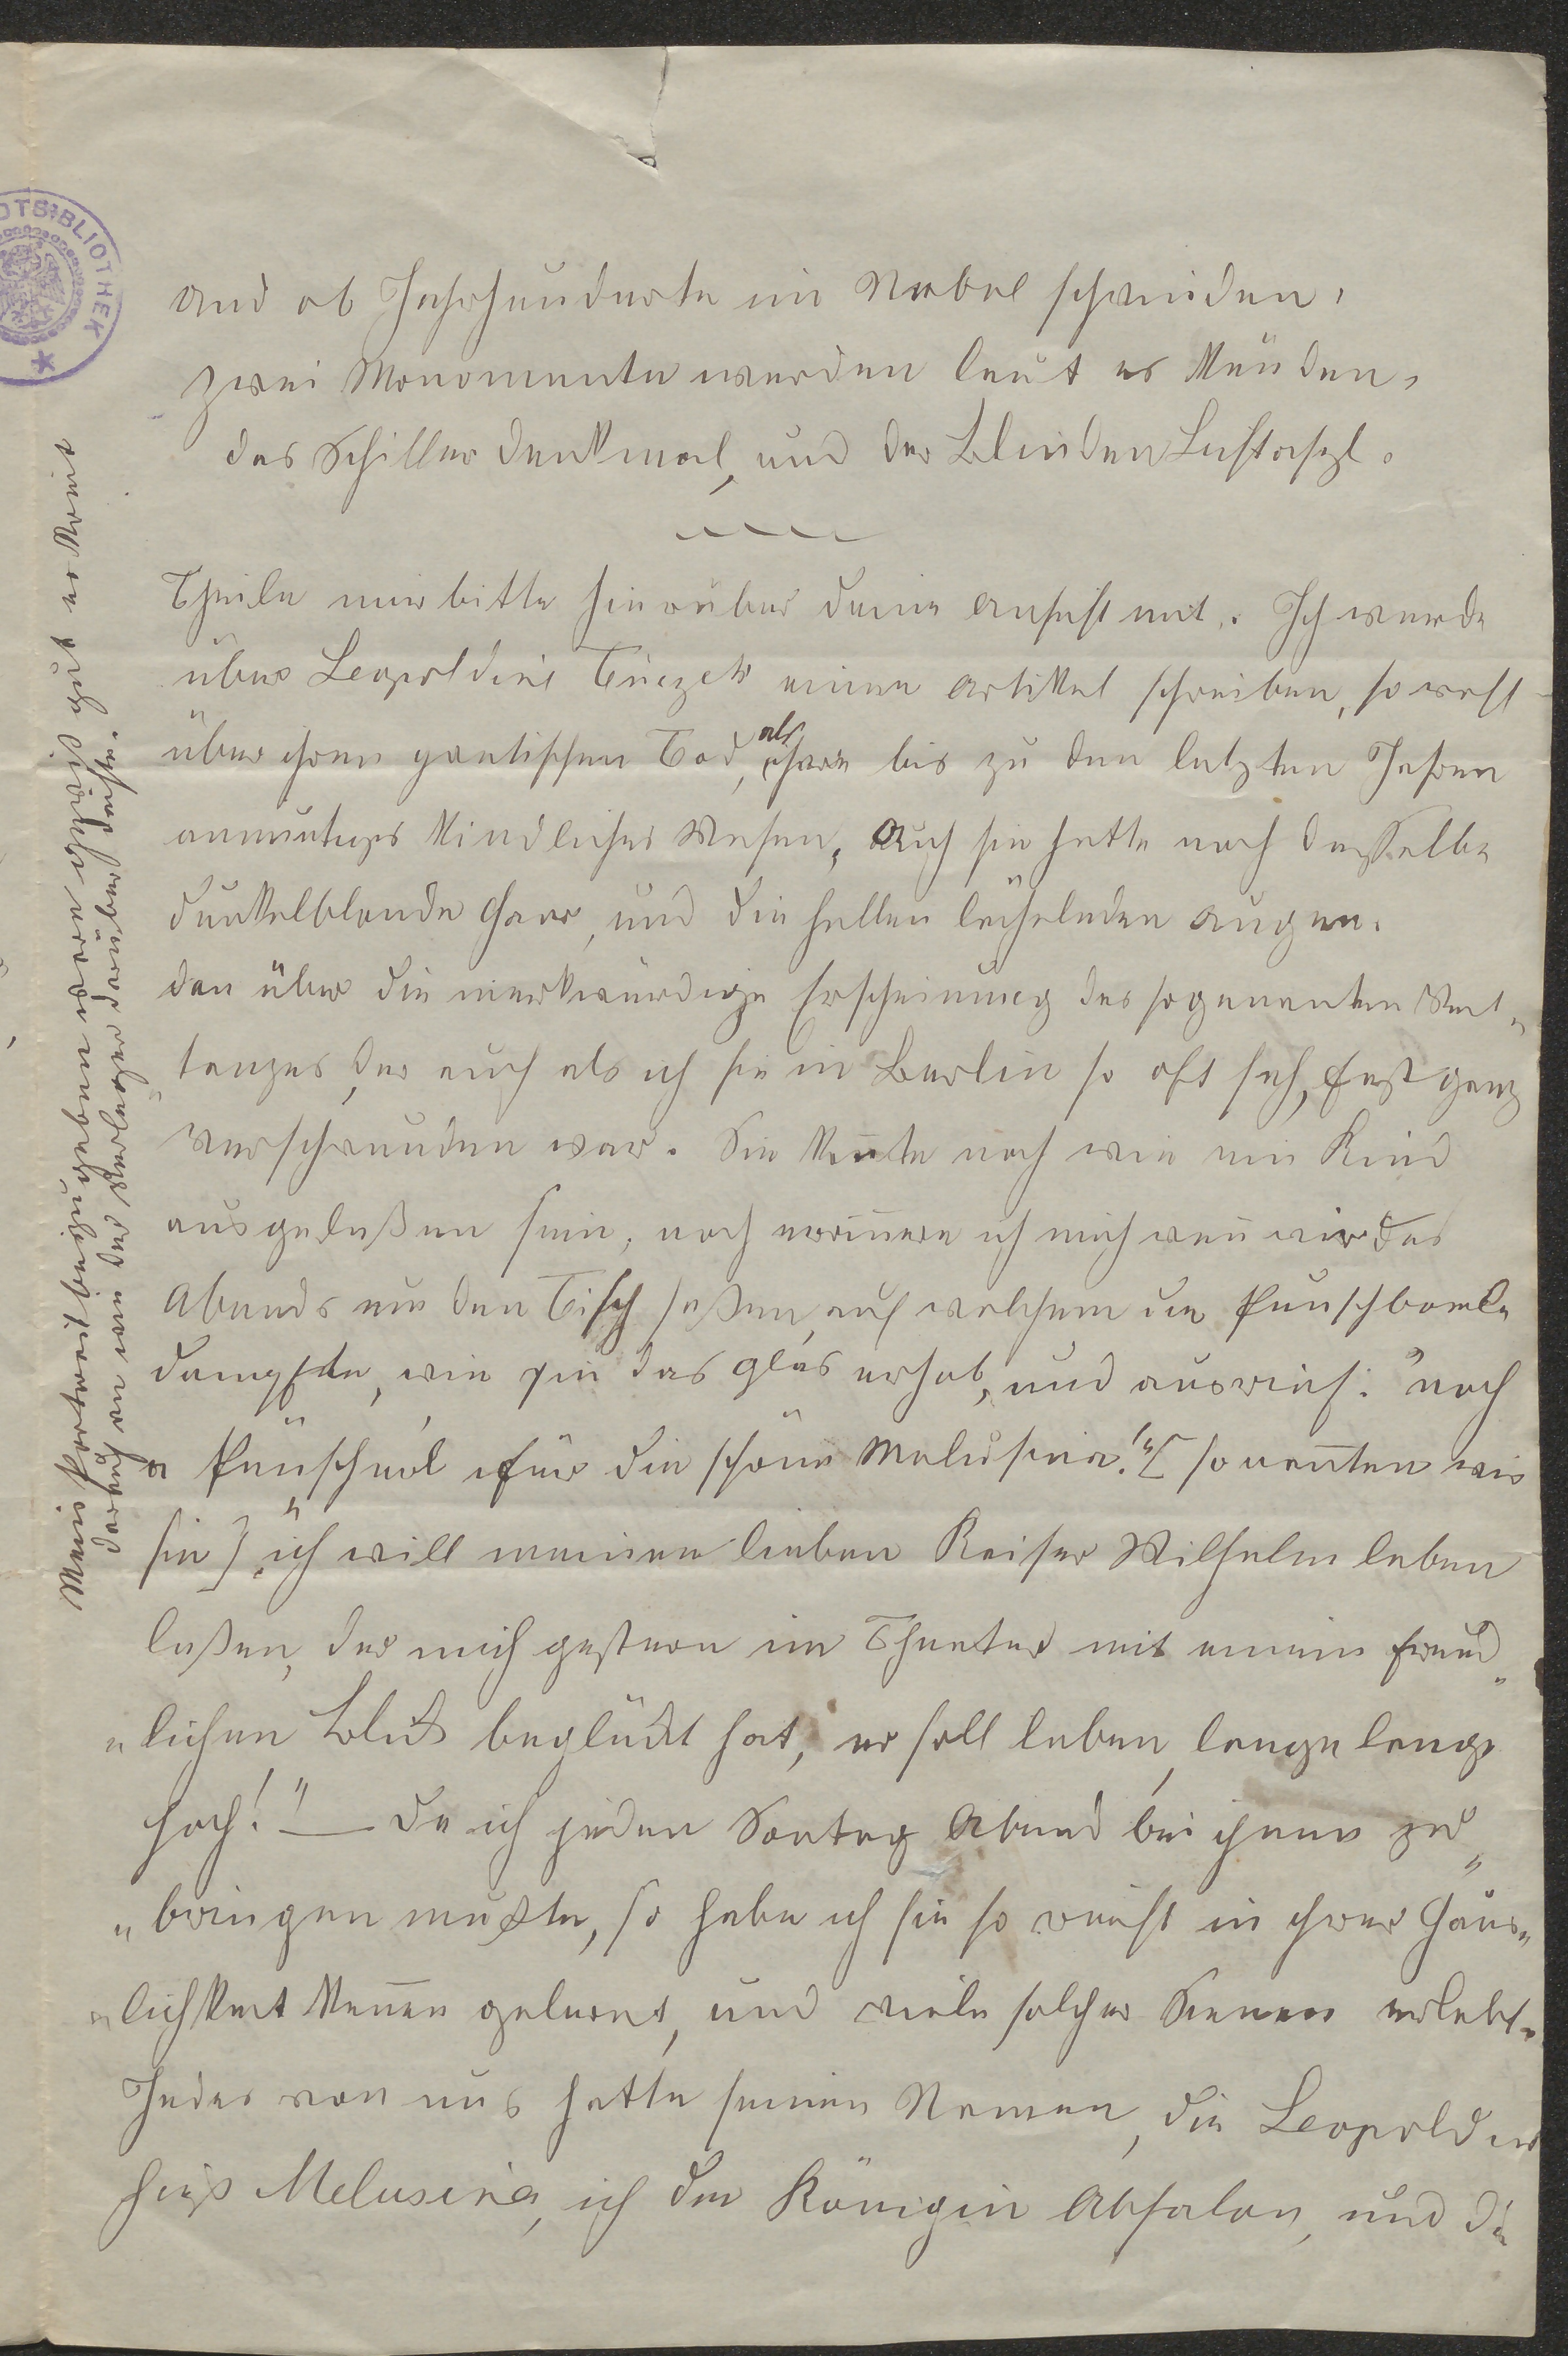 und ob Jahrhunderte im Nebel schwinden,
zwei Monomente werden laut es künden,
das Schiller denkmal, und der Blinden
Theile mir bitte hierüber deine Ansicht mit. Ich werde
über Leopoldine Tuczek einen Artikel schreiben, sowohl
über ihren Tod, als ihre bis zu den letzten Jahren
anmutiges kindliches Wesen, Auch sie hatte noch dasselbe
dunkelblonde Haar, und die hellen lächelnden Augen.
dan über die merkwürdige Erscheinung des sogenanten Veit„
„tanzes, der auch als ich sie in Berlin so oft sah, fast ganz
verschwunden war. Sie konnte noch wie ein Kind
ausgelaßen sein, noch erinnere ich mich wen̄ wir des
Abends um den Tisch saßen, auf welchem die Punschbowle
dampfte, wie sie das Glas erhob, und ausrief: "noch
a Punscherl für die schöne Melusina!" [so nan̄ten wir
sie] "ich will meinen lieben Kaiser Wilhelm leben
laßen, der mich gestern im Theater mit einem freud„
„lichen Blick beglückt hat, er soll leben, lange lange
hoch!" — da ich jeden Sontag Abend bei ihnen zu„
„bringen mußte, so habe ich sie so recht in ihrer Häus„
„lichkeit kennen gelernt, und viele solcher Scenen erlebt.
Jedes von uns hatte seinen Namen, die Leopoldine
hieß Melusina, ich die Königin Absalon, und die
Mein Portrait beizugeben wäre sicher gut er könnt
darnach an den Verleger darüber
DTSBIBLIOTHEK